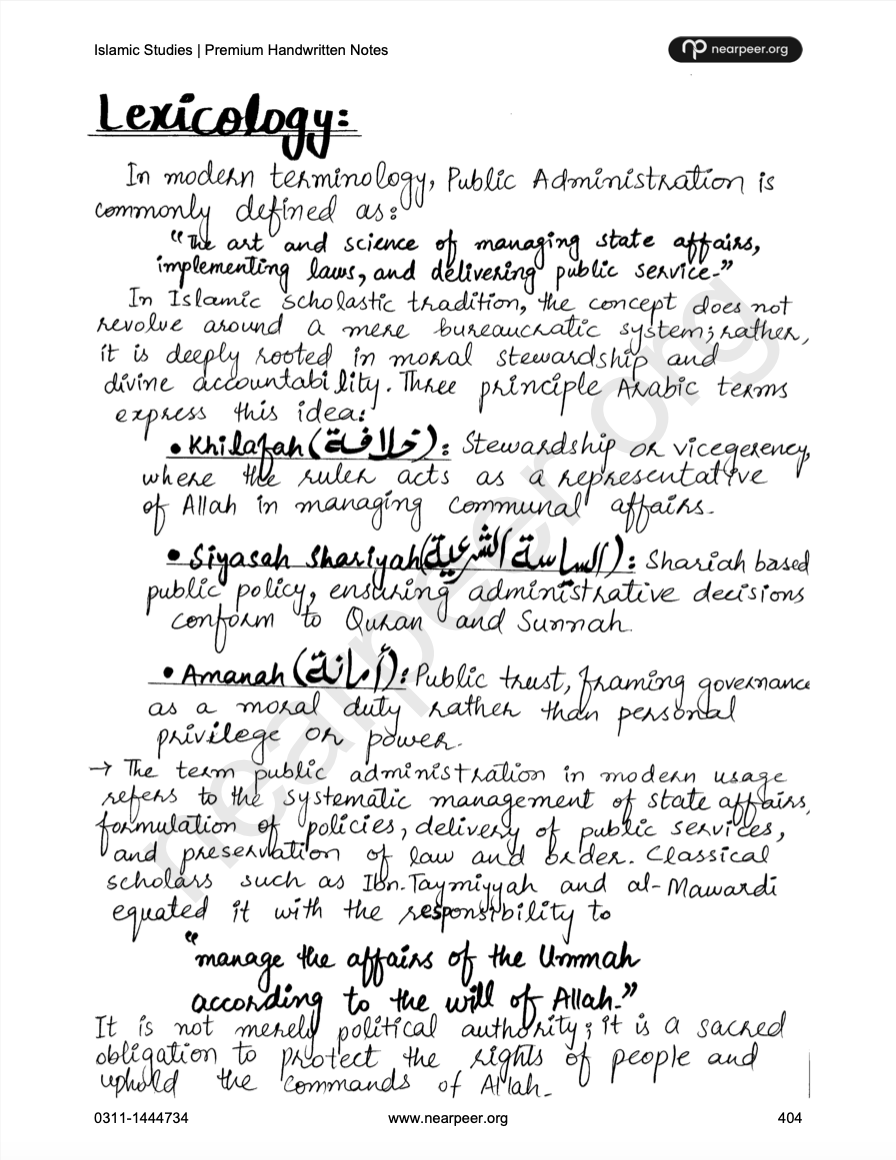 Islamic Studies | Premium Handwritten Notes
nearpeer.org
Lexicology:
In modern terminology, Public Administration is
commonly defined as:
"The art and science of managing state affairs,
implementing laws, and delivering public service."
In Islamic scholastic tradition, the concept does not
revolve around a mere bureaucratic system; rather,
it is deeply rooted in moral stewardship and
divine accountability. Three principle Arabic terms
express this idea:
• Khilafah (خلافة): Stewardship or vicegerency,
where the ruler acts as a representative
of Allah in managing communal affairs.
• Siyasah Shariyah (الساسة الشرعية): Shariah based
public policy, ensuring administrative decisions
conform to Quran and Sunnah.
• Amanah (أمانة): Public trust, framing governance
as a moral duty rather than personal
privilege or power.
→ The term public administration in modern usage
refers to the systematic management of state affairs,
formulation of policies, delivery of public services,
and preservation of law and order. Classical
scholars such as Ibn-Taymiyyah and al-Mawardi
equated it with the responsibility to
"manage the affairs of the Ummah
according to the will of Allah."
It is not merely political authority; it is a sacred
obligation to protect the rights of people and
uphold the commands of Allah.
nearpeer.org
0311-1444734
www.nearpeer.org
404